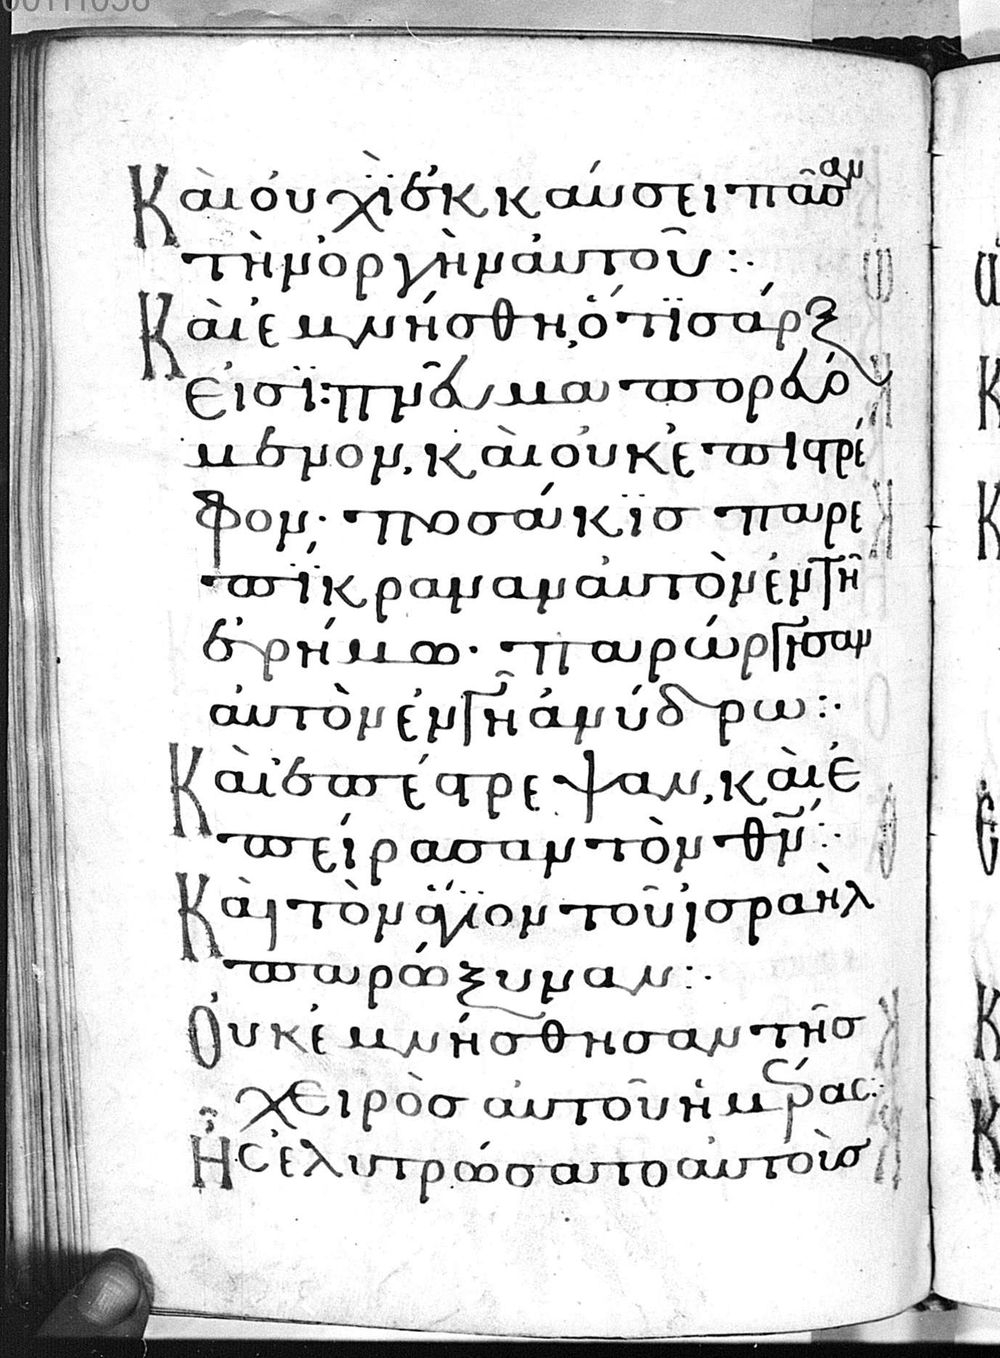 00111058
Καὶ οὐχῒ ἐκκαύσει πᾶσαν
τὴν ὀργὴν ἀυτοῦ:·
Καὶ ἐμνήσθη, ὅτϊ σάρξ
εἰσϊ: πν̃α, πορευό
μενον, καὶ οὐκ ἐπιστρέ
φον· ποσάκϊσ παρε
πίκραναν ἀυτὸν ἐν τῆ
ἐρήμω· παρώργησαν
ἀυτὸν ἐν γῆ ἀνύδρω:·
Καὶ ἐπέστρεψαν, καὶ ἐ
πείρασαν τὸν θν̃:·
Καὶ τὸν ἅγϊον τοῦ ἰσραὴλ
παρώξυναν:·
Οὐκ ἐμνήσθησαν τῆσ
χειρὸσ ἀυτοῦ ἡμέρας:
ἧς ἐλυτρώσατο ἀυτοὺσ